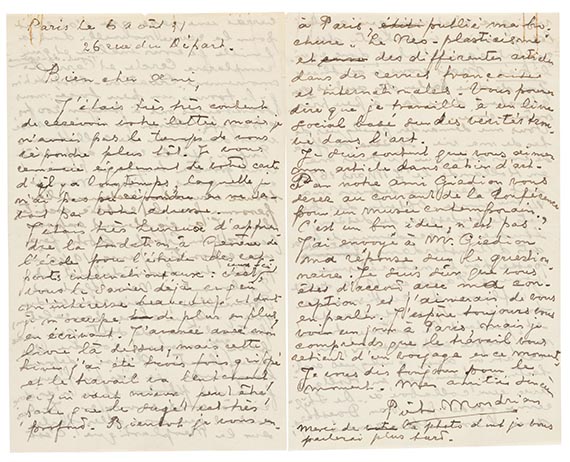 Paris le 6 Août 31
26 rue du Départ.
Bien cher ami,
J'étais très très content
de recevoir votre lettre mais je
n'avais pas le temps de vous
répondre plus tôt. Je vous
remercie également de votre carte
d'il y a longtemps, laquelle je
n'ai pas pu répondre en ne
pas votre adresse.
J'étais très heureux d'appren
dre la fondation à Genève de
l'école pour l'étude des rap
ports internationaux: c'est ce qui,
vous le savez déjà,
m'intéresse beaucoup et dont
je m'occupe de plus en plus
en écrivant. J'avance avec mon
livre là dessus, mais cette
hiver j'ai été trois fois grippé
et le travail va lentement
ce qui vaut mieux peut être
parce que ce sujet est très
profond. Bientôt je vous en-
à Paris publié ma bro
chure: "Le Néo-plasticisme"
et des différentes articles
dans des revues françaises
et internationales. Vous pouvez
dire que je travaille à un livre
social basé sur des vérités trou
vé dans l'art.
Je suis content que vous aimez
article dans cahier d'art.
Par notre ami Giedion vous
serez au courant de la
pour un musée
C'est un bon idée, n'est pas?
J'ai envoyé à Mr. Giedion
ma réponse sur le question
naire. Je suis sûr que vous
êtes d'accord avec ma con-
ception et j'aimerais de vous
en parler. J'espère toujours vous
voir un jour à Paris, mais je
comprends que le travail vous
retient d'un voyage en ce moment.
Je vous dis bonjour pour le
moment. Mes amitiés sincères
Piet Mondrian
Merci de la photo dont je vous
parlerai plus tard.